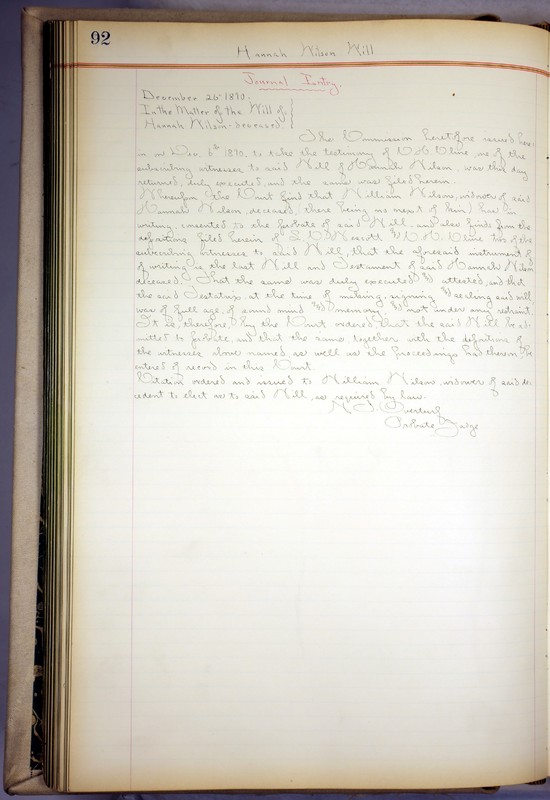 92
Hannah Wilson Will
Journal Entry.
December 26 1890.
In the Matter of the Will of
Hannah Wilson deceased.
The Commission heretofore issued here-
in on Dec. 6th 1890, to take the testimony of C. H. Cline, one of the
subscribing witnesses to said Will of Hannah Wilson, was this day
returned, duly executed, and the same was filed herein.
Wherefore the Court find that William Wilson, widower of said
Hannah Wilson, deceased, (there being no next of kin) has in
writing, consented to the probate of said Will, and also finds from the
depositions filed herein of & C. H. Cline two of the
subscribing witnesses to said Will, that the aforesaid instrument of
of writing is the last Will and Testament of said Hannah Wilson
deceased; that the same was duly executed & attested, and that
the said Testatrix at the time of making, signing & sealing said will,
was of full age, of sound mind & memory & not under any restraint.
It is, therefore, by the Court ordered, that the said Will be ad-
mitted to probate, and that the same together with the depositions of
the witnesses above named, as well as the proceedings had therein be
entered of record in this Court.
Citation ordered and issued to William Wilson, widower of said de-
cedent to elect as to said Will, as required by law.
Overturf
Probate Judge